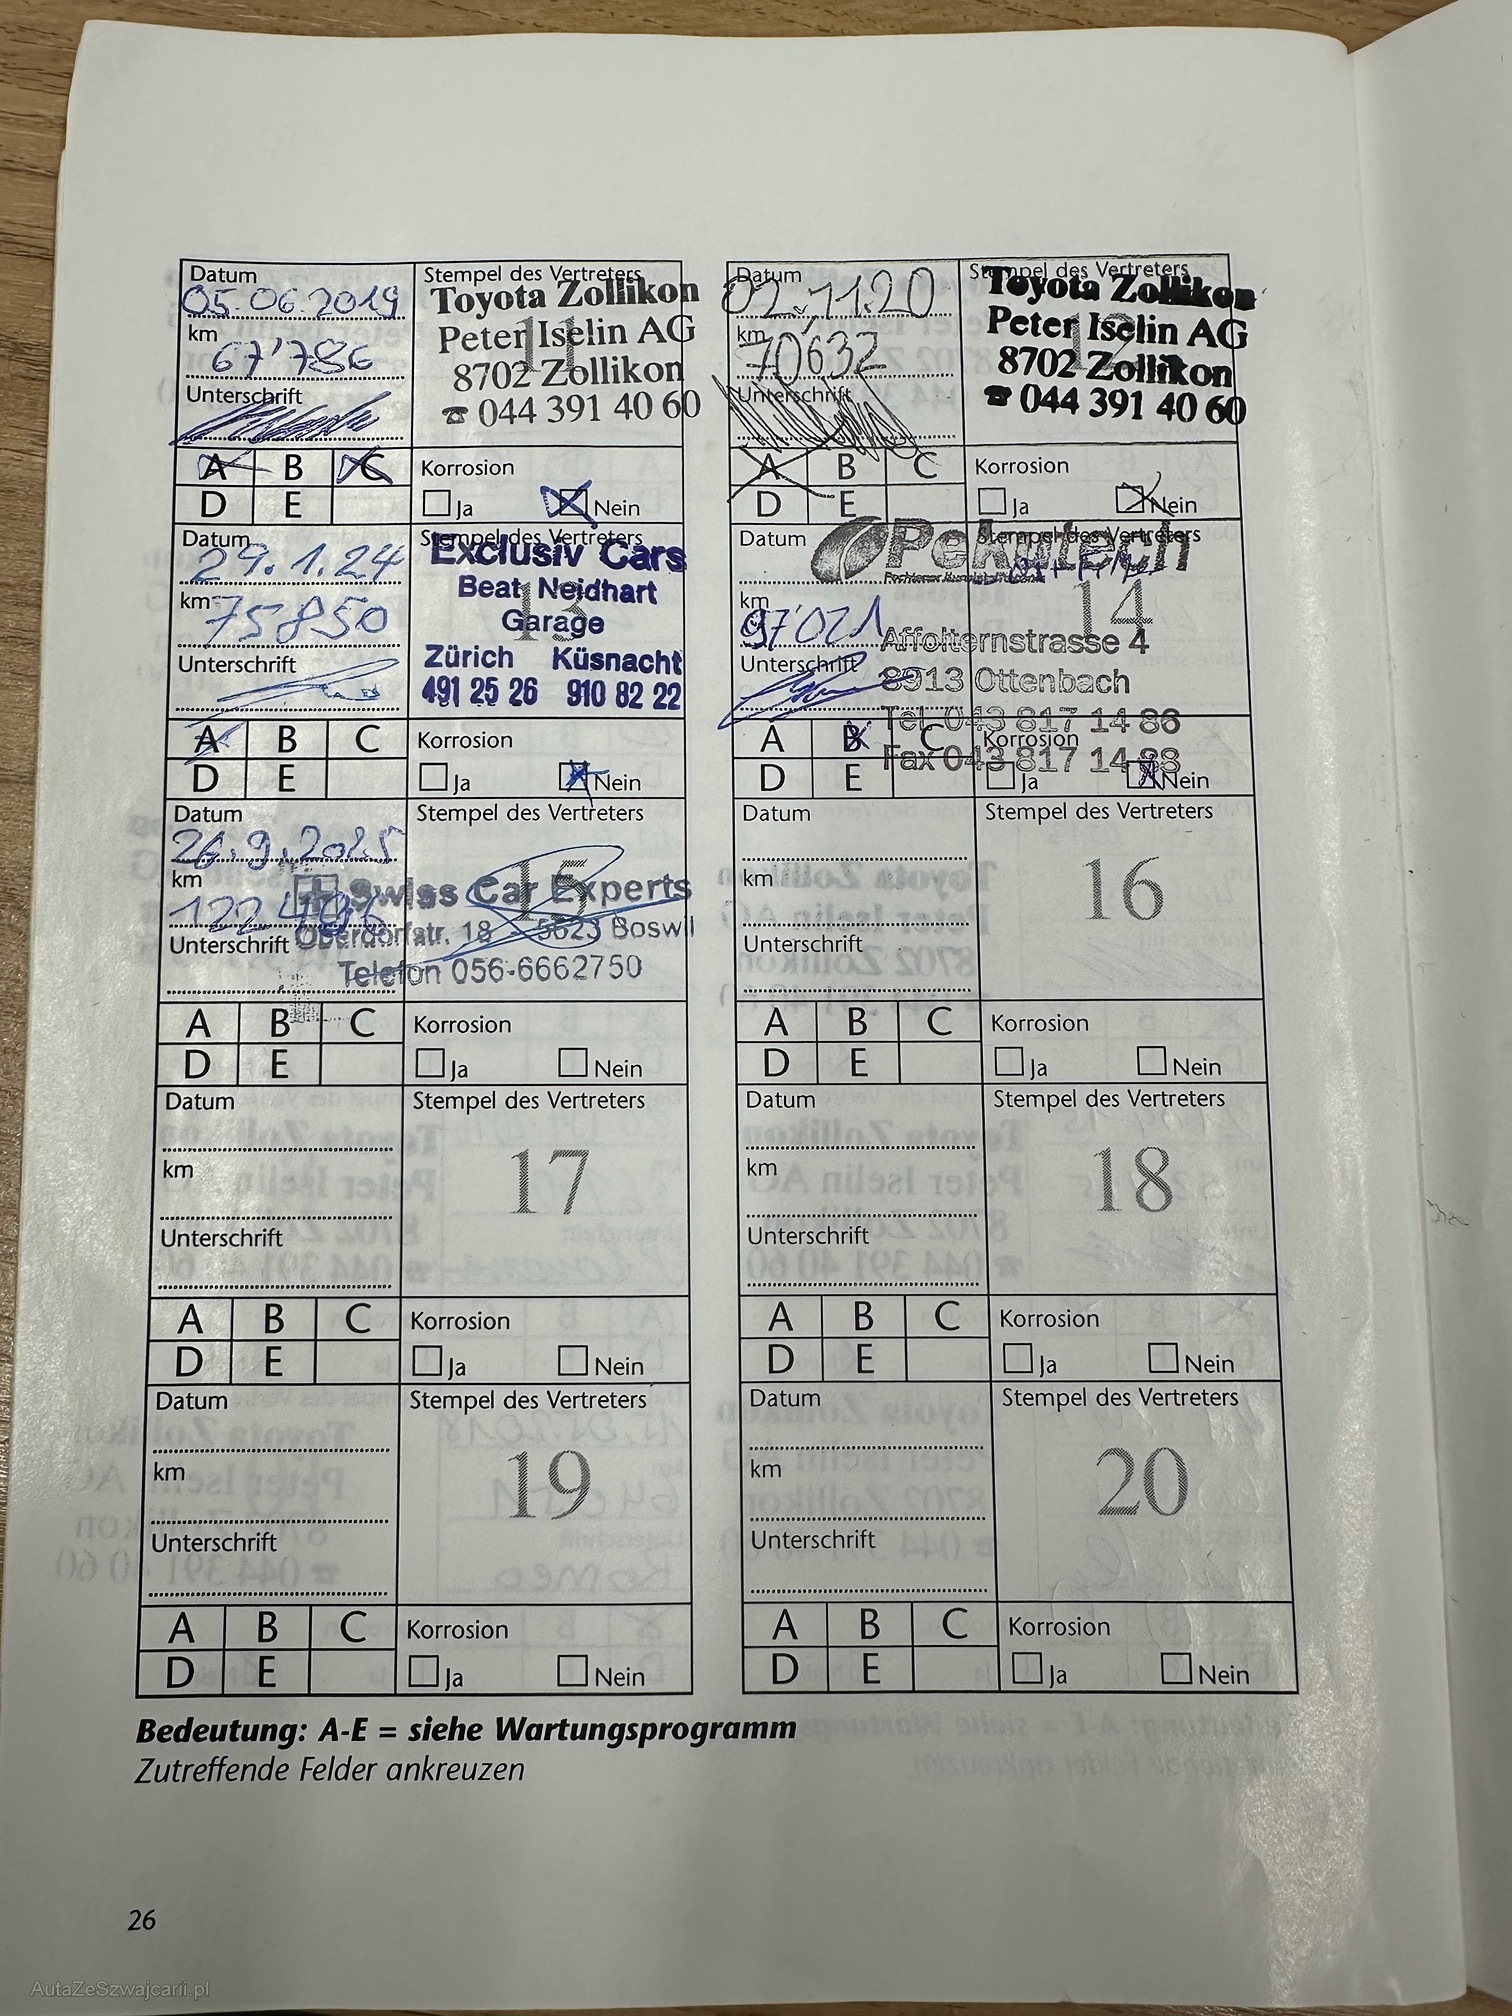 Datum
05.06.2019
km
67'786
Unterschrift
Stempel des Vertreters
11
Toyota Zollikon
Peter Iselin AG
8702 Zollikon
☎ 044 391 40 60
A B C
D E
Korrosion
Ja Nein
Datum
02.11.20
km
70632
Unterschrift
Stempel des Vertreters
12
Toyota Zollikon
Peter Iselin AG
8702 Zollikon
☎ 044 391 40 60
A B C
D E
Korrosion
Ja Nein
Datum
29.1.24
km
75850
Unterschrift
Stempel des Vertreters
13
Exclusiv Cars
Beat Neidhart
Garage
Zürich Küsnacht
491 25 26 910 82 22
A B C
D E
Korrosion
Ja Nein
Datum
km
97'021
Unterschrift
Stempel des Vertreters
14
Pekutech
Affolternstrasse 4
8913 Ottenbach
Tel 043 817 14 86
Fax 043 817 14 88
A B C
D E
Korrosion
Ja Nein
Datum
26.9.2025
km
122 496
Unterschrift
Stempel des Vertreters
15
Swiss Car Experts
Oberdorfstr. 18 - 5623 Boswil
Telefon 056-6662750
A B C
D E
Korrosion
Ja Nein
Datum
km
Unterschrift
Stempel des Vertreters
16
A B C
D E
Korrosion
Ja Nein
Datum
km
Unterschrift
Stempel des Vertreters
17
A B C
D E
Korrosion
Ja Nein
Datum
km
Unterschrift
Stempel des Vertreters
18
A B C
D E
Korrosion
Ja Nein
Datum
km
Unterschrift
Stempel des Vertreters
19
A B C
D E
Korrosion
Ja Nein
Datum
km
Unterschrift
Stempel des Vertreters
20
A B C
D E
Korrosion
Ja Nein
Bedeutung: A-E = siehe Wartungsprogramm
Zutreffende Felder ankreuzen
26
AutaZeSzwajcarii.pl